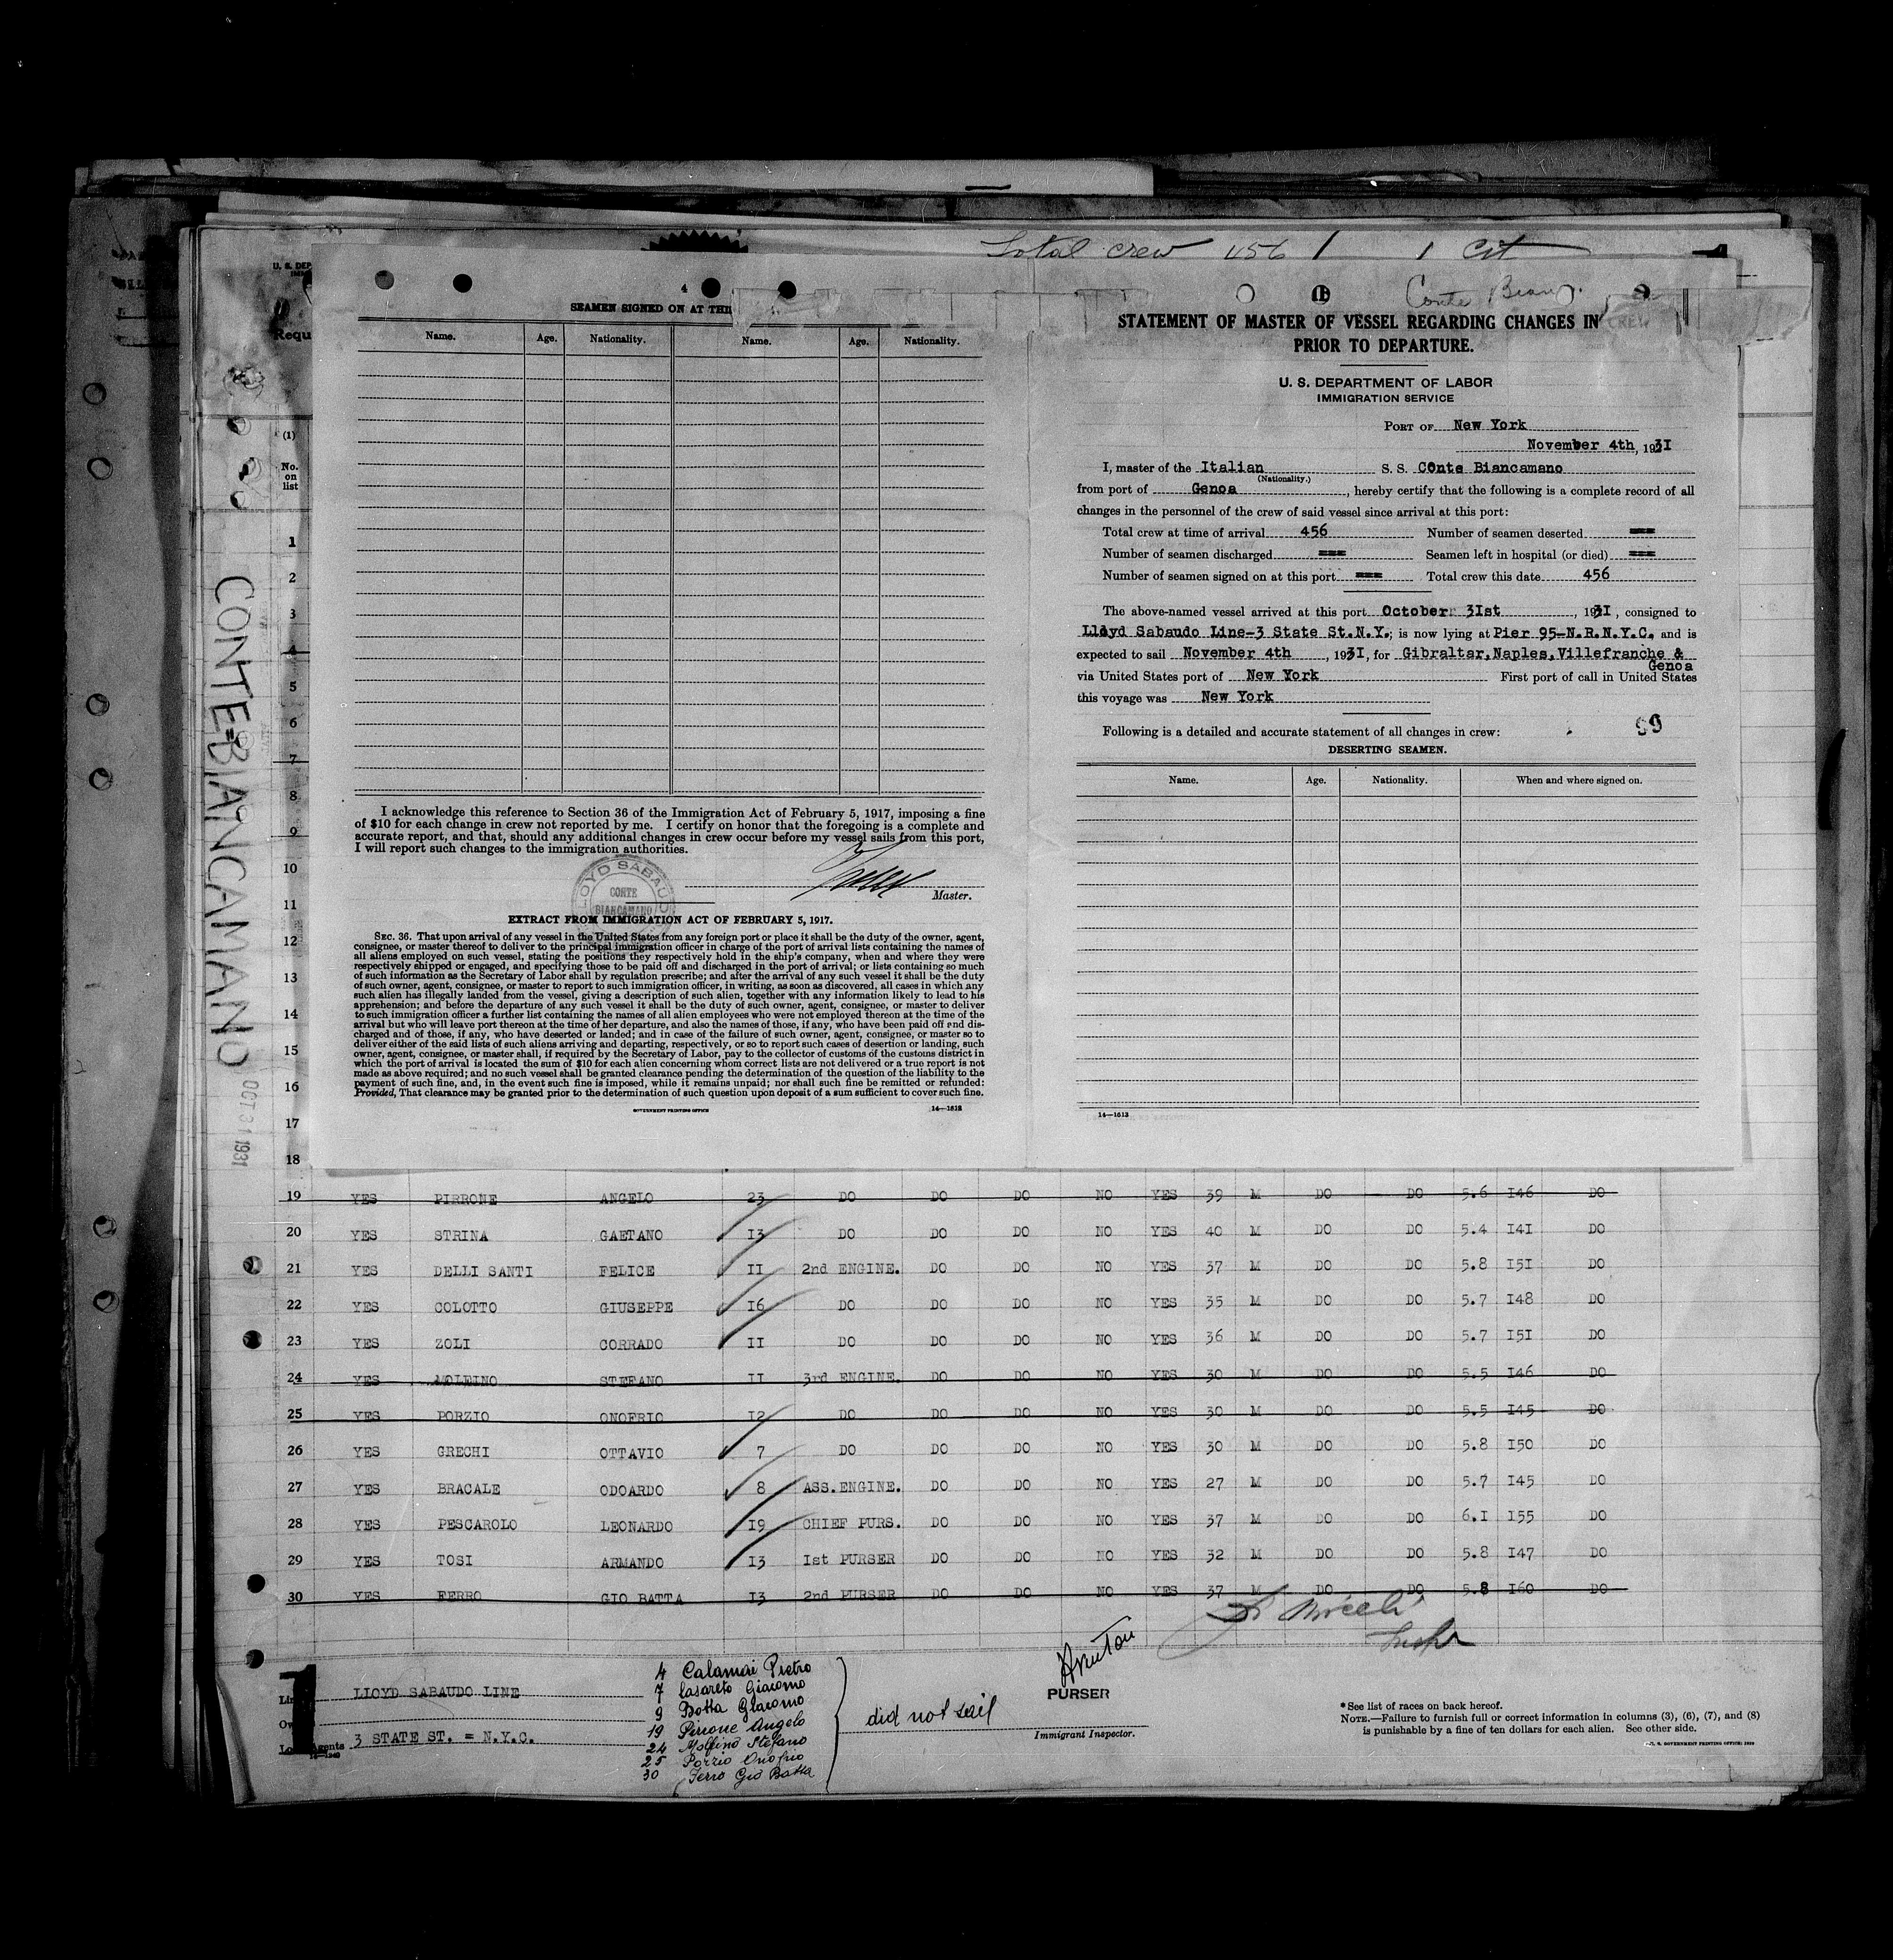 Total crew 456 / 1 Cit
Conte Bian
U. S. DEP
Requ
(1)
No. on list
1
2
3
4
5
6
7
8
9
10
11
12
13
14
15
16
17
18
CONTE=BIANCAMANO
OCT 31 1931
4
SEAMEN SIGNED ON AT THI
Name. Age. Nationality. Name. Age. Nationality.
I acknowledge this reference to Section 36 of the Immigration Act of February 5, 1917, imposing a fine
of $10 for each change in crew not reported by me. I certify on honor that the foregoing is a complete and
accurate report, and that, should any additional changes in crew occur before my vessel sails from this port,
I will report such changes to the immigration authorities.
LLOYD SABAUDO
CONTE
BIANCAMANO
Master.
EXTRACT FROM IMMIGRATION ACT OF FEBRUARY 5, 1917.
SEC. 36. That upon arrival of any vessel in the United States from any foreign port or place it shall be the duty of the owner, agent,
consignee, or master thereof to deliver to the principal immigration officer in charge of the port of arrival lists containing the names of
all aliens employed on such vessel, stating the positions they respectively hold in the ship's company, when and where they were
respectively shipped or engaged, and specifying those to be paid off and discharged in the port of arrival; or lists containing so much
of such information as the Secretary of Labor shall by regulation prescribe; and after the arrival of any such vessel it shall be the duty
of such owner, agent, consignee, or master to report to such immigration officer, in writing, as soon as discovered, all cases in which any
such alien has illegally landed from the vessel, giving a description of such alien, together with any information likely to lead to his
apprehension; and before the departure of any such vessel it shall be the duty of such owner, agent, consignee, or master to deliver
to such immigration officer a further list containing the names of all alien employees who were not employed thereon at the time of the
arrival but who will leave port thereon at the time of her departure, and also the names of those, if any, who have been paid off and dis-
charged and of those, if any, who have deserted or landed; and in case of the failure of such owner, agent, consignee, or master so to
deliver either of the said lists of such aliens arriving and departing, respectively, or so to report such cases of desertion or landing, such
owner, agent, consignee, or master shall, if required by the Secretary of Labor, pay to the collector of customs of the customs district in
which the port of arrival is located the sum of $10 for each alien concerning whom correct lists are not delivered or a true report is not
made as above required; and no such vessel shall be granted clearance pending the determination of the question of the liability to the
payment of such fine, and, in the event such fine is imposed, while it remains unpaid; nor shall such fine be remitted or refunded:
Provided, That clearance may be granted prior to the determination of such question upon deposit of a sum sufficient to cover such fine.
GOVERNMENT PRINTING OFFICE 14—1513
STATEMENT OF MASTER OF VESSEL REGARDING CHANGES IN CREW
PRIOR TO DEPARTURE.
U. S. DEPARTMENT OF LABOR
IMMIGRATION SERVICE
PORT OF New York
November 4th, 1931
I, master of the Italian S. S. COnte Biancamano
(Nationality.)
from port of Genoa, hereby certify that the following is a complete record of all
changes in the personnel of the crew of said vessel since arrival at this port:
Total crew at time of arrival 456 Number of seamen deserted ===
Number of seamen discharged === Seamen left in hospital (or died) ===
Number of seamen signed on at this port === Total crew this date 456
The above-named vessel arrived at this port October 3Ist, 193I, consigned to
Lloyd Sabaudo Line-3 State St.N.Y.; is now lying at Pier 95-N.R.N.Y.C. and is
expected to sail November 4th, 193I, for Gibraltar,Naples,Villefranche &
Genoa
via United States port of New York First port of call in United States
this voyage was New York
99
Following is a detailed and accurate statement of all changes in crew:
DESERTING SEAMEN.
Name. Age. Nationality. When and where signed on.
14—1513
19 YES PIRRONE ANGELO 23 DO DO DO NO YES 39 M DO DO 5.6 I46 DO
20 YES STRINA GAETANO I3 DO DO DO NO YES 40 M DO DO 5.4 I4I DO
21 YES DELLI SANTI FELICE II 2nd ENGINE. DO DO NO YES 37 M DO DO 5.8 I5I DO
22 YES COLOTTO GIUSEPPE I6 DO DO DO NO YES 35 M DO DO 5.7 I48 DO
23 YES ZOLI CORRADO II DO DO DO NO YES 36 M DO DO 5.7 I5I DO
24 YES MOLFINO STEFANO II 3rd ENGINE. DO DO NO YES 30 M DO DO 5.5 I46 DO
25 YES PORZIO ONOFRIO I2 DO DO DO NO YES 30 M DO DO 5.5 I45 DO
26 YES GRECHI OTTAVIO 7 DO DO DO NO YES 30 M DO DO 5.8 I50 DO
27 YES BRACALE ODOARDO 8 ASS.ENGINE. DO DO NO YES 27 M DO DO 5.7 I45 DO
28 YES PESCAROLO LEONARDO I9 CHIEF PURS. DO DO NO YES 37 M DO DO 6.I I55 DO
29 YES TOSI ARMANDO I3 Ist PURSER DO DO NO YES 32 M DO DO 5.8 I47 DO
30 YES FERRO GIO BATTA I3 2nd PURSER DO DO NO YES 37 M DO DO 5.8 I60 DO
1
LLOYD SABAUDO LINE
Agents 3 STATE ST. = N.Y.C.
4 Calamai Pietro
7 Casareto Giacomo
9 Botta Giacomo
19 Pirrone Angelo
24 Molfino Stefano
25 Porzio Onofrio
30 Ferro Gio Batta
did not sail
PURSER
Immigrant Inspector.
*See list of races on back hereof.
NOTE.—Failure to furnish full or correct information in columns (3), (6), (7), and (8)
is punishable by a fine of ten dollars for each alien. See other side.
U. S. GOVERNMENT PRINTING OFFICE: 1930